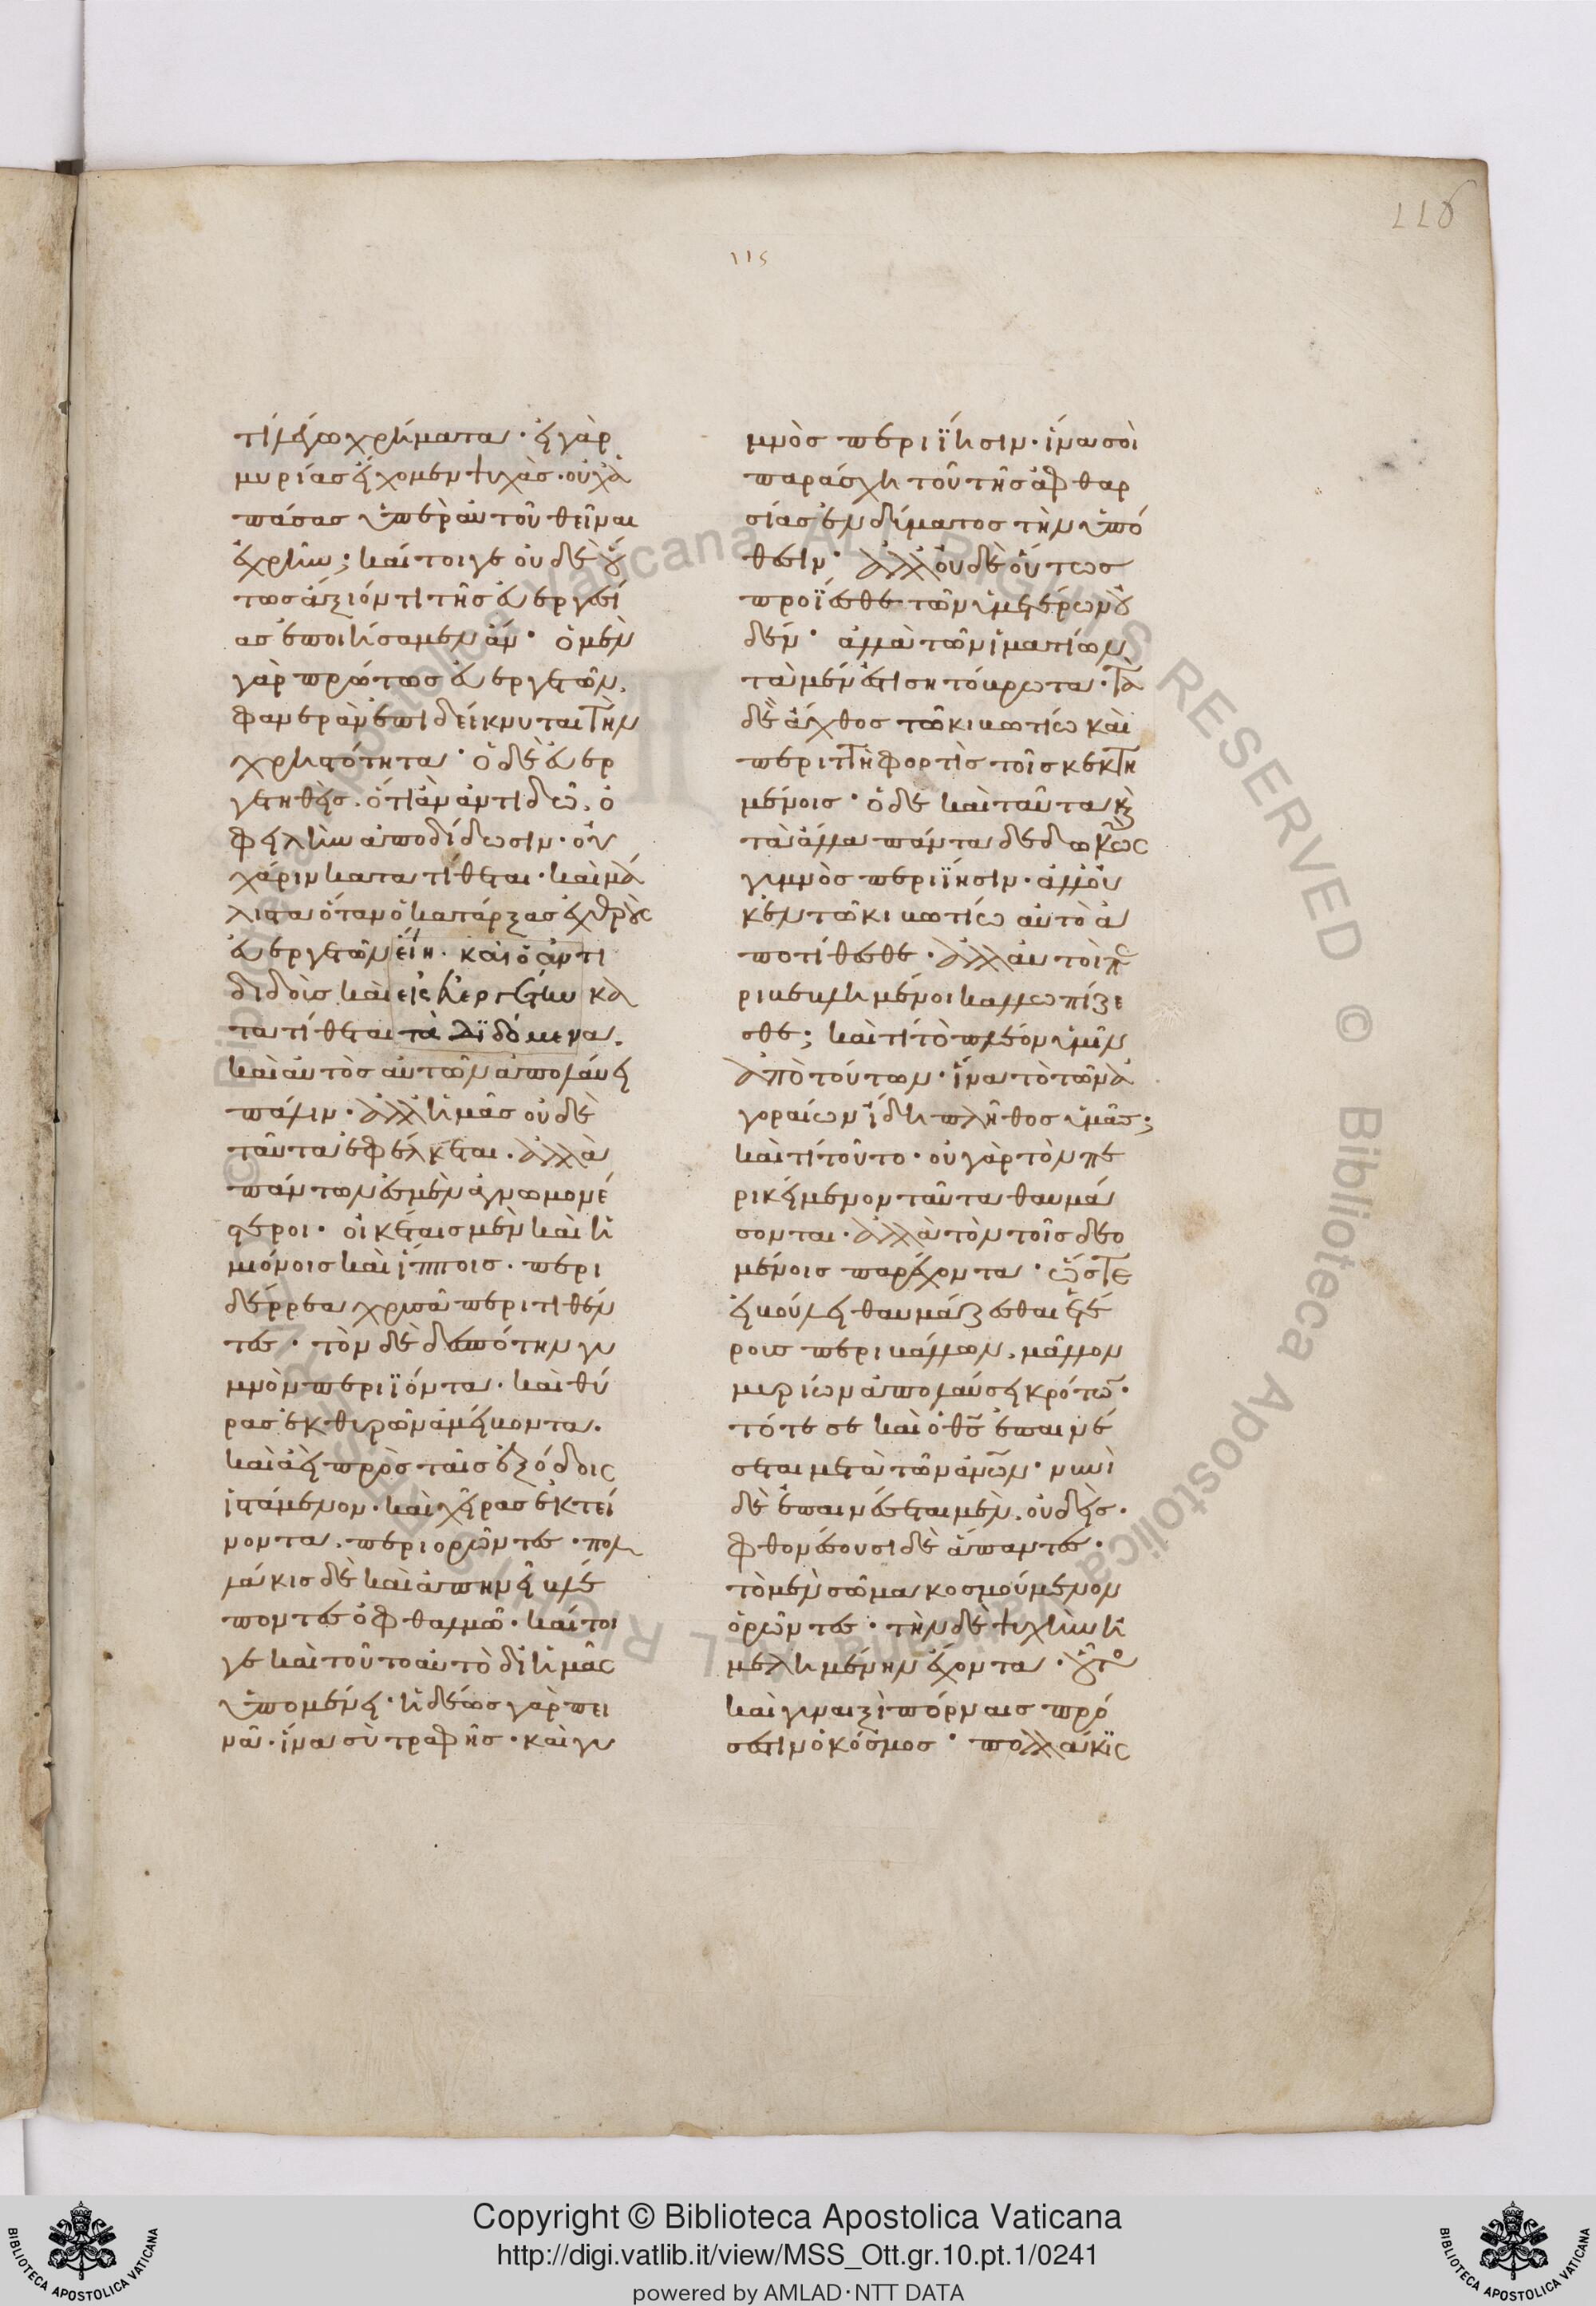 116
115
τί λέγω χρήματα· εἰ γὰρ
μυρίας εἴχομεν ψυχὰς· οὐχ ἁ
πάσας ὑπὲρ αὐτοῦ θεῖναι
ἐχρῆν; καίτοιγε οὐδὲ οὕ
τως ἄξιόν τι τῆς εὐεργεσί
ας ἐποιήσαμεν ἄν· ὁ μὲν
γὰρ πρώτως εὐεργετῶν,
φανερὰν ἐπιδείκνυται τὴν
χρηστότητα· ὁ δὲ εὐερ
γετηθεὶς. ὅτι ἂν ἀντιδῷ. ὀ
φειλὴν ἀποδίδωσιν· οὐ
χάριν κατατίθεται· καὶ μά
λιστα ὅταν ὁ κατάρξας ἐχθροὺς
εὐεργετῶν εἴη· καὶ ὁ ἀντι
διδοὺς καὶ εἰς εὐεργέτην κα
τατίθεται τὰ διδόμενα.
καὶ αὐτὸς αὐτῶν ἀπολαύει
πάλιν· ἀλλ' ἡμᾶς οὐδὲ
ταῦτα ἐφέλκεται. ἀλλὰ
πάντων ἐσμὲν ἀγνωμονέ
στεροι· οἰκέταις μὲν καὶ ἡ
μιόνοις καὶ ἵπποις. περι
δέρρεα χρυσᾶ περιτιθέν
τες· τὸν δὲ δεσπότην γυ
μνὸν περιϊόντα. καὶ θύ
ρας ἐκ θυρῶν ἀμείβοντα.
καὶ ἀεὶ πρὸς ταῖς ἐξόδοις
ἱστάμενον. καὶ χεῖρας ἐκτεί
νοντα. περιορῶντες· πολ
λάκις δὲ καὶ ἀπηνεῖ βλέ
ποντες ὀφθαλμῷ· καίτοι
γε καὶ τοῦτο αὐτὸ δι' ἡμᾶς
ὑπομένει· ἡδέως γὰρ πει
νᾷ· ἵνα σὺ τραφῇς· καὶ γυ
μνὸς περιΐησιν· ἵνα σοὶ
παράσχῃ τοῦ τῆς ἀφθαρ
σίας ἐνδύματος τὴν ὑπό
θεσιν· ἀλλ' οὐδὲ οὕτως
προΐεσθε τῶν ὑμετέρων οὐ
δέν· ἀλλὰ τῶν ἱματίων
τὰ μέν ἐστι σητόβρωτα· τὰ
δὲ ἄχθος τῷ κιβωτίῳ καὶ
περιττὴ φορτὶς τοῖς κεκτη
μένοις· ὁ δὲ καὶ ταῦτα καὶ
τὰ ἄλλα πάντα δεδωκὼς
γυμνὸς περιΐησιν· ἀλλ' οὐ
κ ἐν τῷ κιβωτίῳ αὐτὸ ἀ
ποτίθεσθε· ἀλλ' αὐτοὶ πε
ρικείμενοι καλλωπίζε
σθε; καὶ τί τὸ πλέον ὑμῖν
ἀπὸ τούτων· ἵνα τὸ τῶν ἀ
γοραίων ἴδῃ πλῆθος ὑμᾶς;
καὶ τί τοῦτο· οὐ γὰρ τὸν πε
ρικείμενον ταῦτα θαυμά
σονται. ἀλλὰ τὸν τοῖς δεο
μένοις παρέχοντα· ὥστε
εἰ βούλει θαυμάζεσθαι ἑτέ
ρους περιβάλλων, μᾶλλον
μυρίων ἀπολαύσει κρότων·
τότε σε καὶ ὁ θς ἐπαινέ
σεται μετὰ τῶν ἀνων· νυνὶ
δὲ ἐπαινέσεται μὲν. οὐδεὶς·
φθονέσουσι δὲ ἅπαντες·
τὸ μὲν σῶμα κοσμούμενον
ὁρῶντες· τὴν δὲ ψυχὴν ἠ
μελημένην ἔχοντα· οὗτος
καὶ γυναιξὶ πόρναις πρό
σεστιν ὁ κόσμος· πολλάκις
Copyright © Biblioteca Apostolica Vaticana
http://digi.vatlib.it/view/MSS_Ott.gr.10.pt.1/0241
powered by AMLAD·NTT DATA